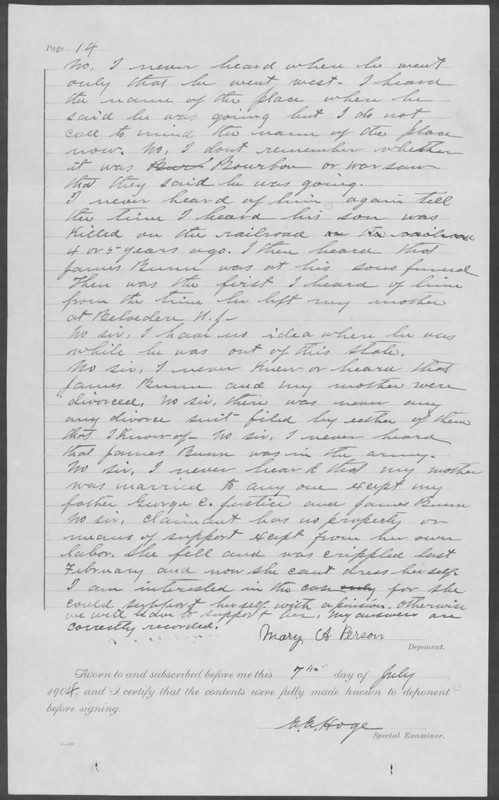 Page 14
No, I never heard where he went
only that he went west. I heard
the name of the place where he
said he was going but I do not
call to mind the name of the place
now. No, I dont remember whether
it was Bourbon or Warsaw
that they said he was going.
I never heard of him again till
the time I heard his son was
killed on the railroad on the railroad
4 or 5 years ago. I then heard that
James Bunn was at his sons funeral
Then was the first I heard of him
from the time he left my mother
at Belvedere N.J-
No sir, I have no idea where he was
while he was out of this state.
No sir, I never knew or heard that
James Bunn and my mother were
divorced, no sir, there was never any
any divorce suit filed by either of them
that I know of- No sir, I never heard
that James Bunn was in the army.
No sir, I never heard that my mother
was married to any one except my
father George C. Justice and James Bunn
No sir, claimant has no property or
means of support except from her own
labor. She fell and was crippled last
February and now she cant dress herself
I am interested in the case only for she
could support herself with a pension. Otherwise
we will have to support her. My answers are
correctly recorded.
Mary A Person
Deponent.
Sworn to and subscribed before me this 7th day of July
1904, and I certify that the contents were fully made known to deponent
before signing.
E.E. Hoge
Special Examiner.